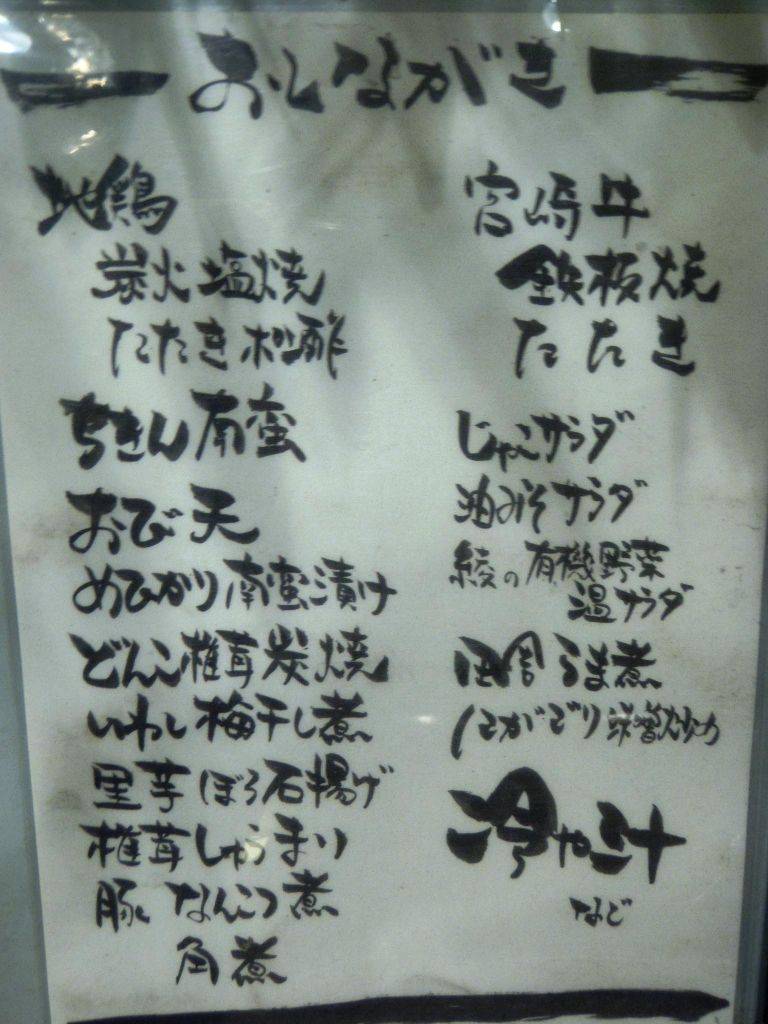 おしながき
地鶏
炭火塩焼
たたきポン酢
ちきん南蛮
おび天
めひかり南蛮漬け
どんこ椎茸炭焼
いわし梅干し煮
里芋ぼろ石揚げ
椎茸しゅうまい
豚なんこつ煮
角煮
宮崎牛
鉄板焼
たたき
じゃこサラダ
油みそサラダ
綾の有機野菜
温サラダ
うま煮
にがごり味噌炒め
冷や汁
など